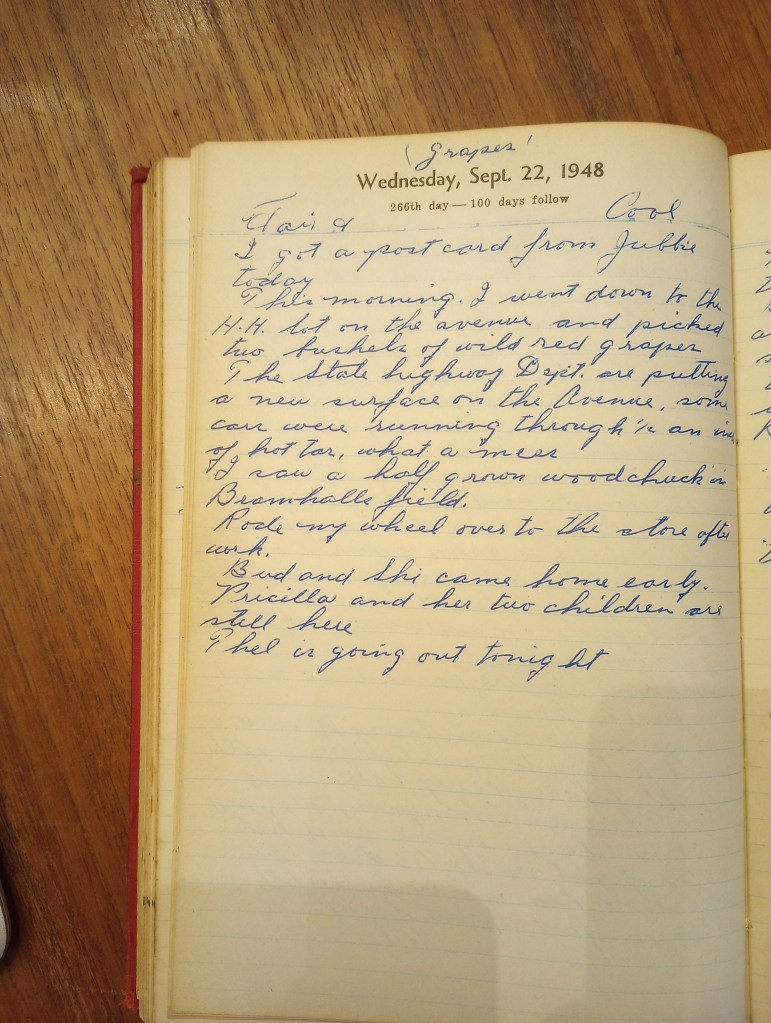 'Grapes'
Wednesday, Sept. 22, 1948
266th day — 100 days follow
Fair & Cool
I got a post card from Jubbie
today
This morning. I went down to the
H.H. lot on the avenue and picked
two bushels of wild red grapes
The State highway Dept. are putting
a new surface on the Avenue, some
cars were running through ½ an inch
of hot tar, what a mess
I saw a half grown woodchuck in
Bramhalls field.
Rode my wheel over to the store after
work.
Bud and Shi came home early.
Pricilla and her two children are
still here
Thel is going out tonight